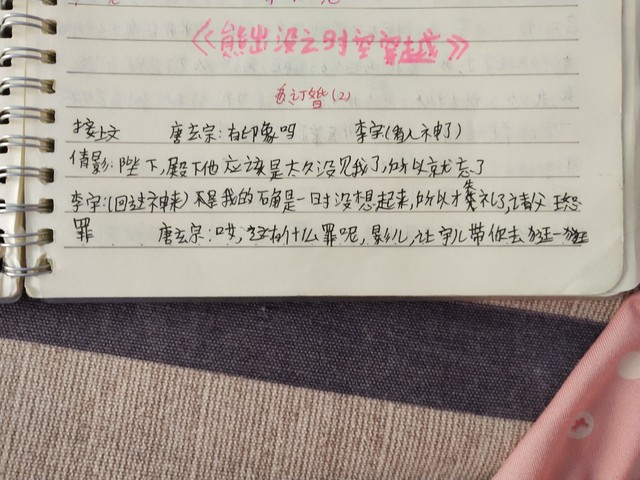 《熊出没之时空穿越》
订婚(2)
接上文 唐玄宗:有印象吗 李宇(看入神了)
倩影:陛下,殿下他应该是太久没见我了,所以就忘了
李宇:(回过神来)不是我的确是一时没想起来,所以才失礼了,请父王恕
罪 唐玄宗:哎,这有什么罪呢,影儿,让宇儿带你去逛一逛